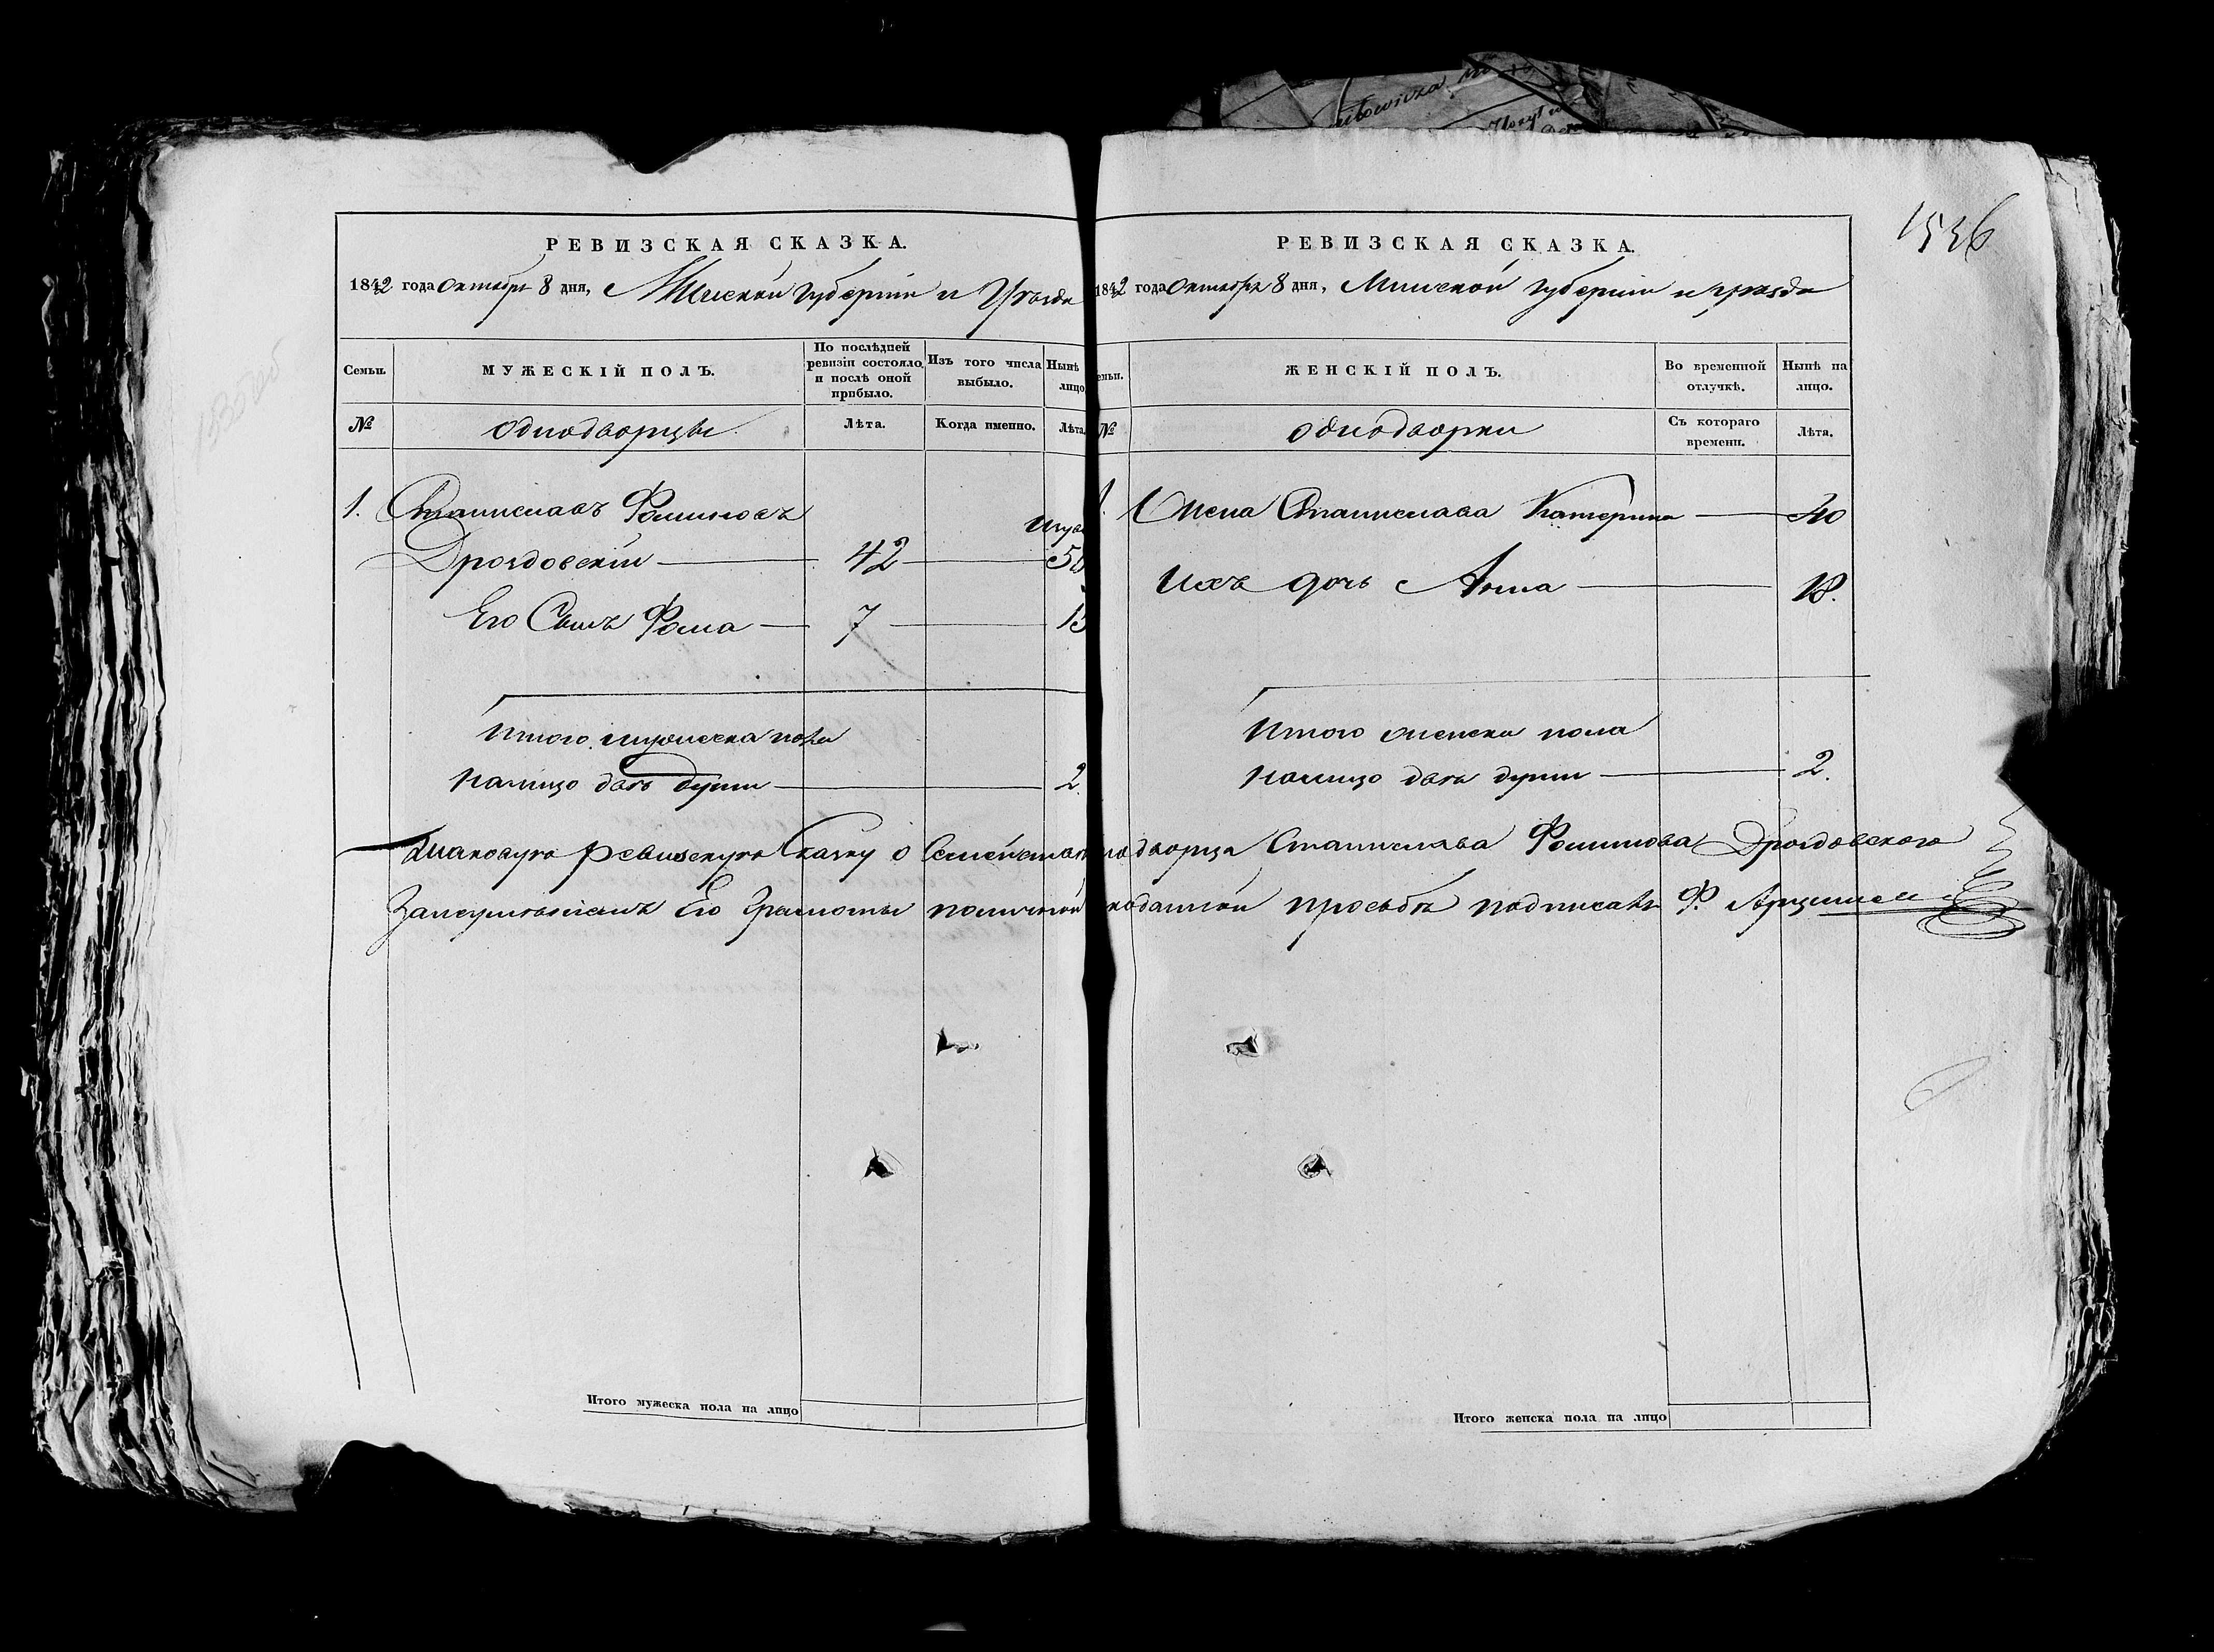 1536
РЕВИЗСКАЯ СКАЗКА.
1842 года Октября 8 дня, Минской губернїи и Уѣзда
Семьи.
МУЖЕСКІЙ ПОЛЪ.
По послѣдней ревизіи состояло, и послѣ оной прибыло.
Изъ того числа выбыло.
Нынѣ лицо
№
однодворцы.
Лѣта.
Когда именно.
Лѣта.
1. Станиславъ Фоминовъ
Дроздовскій 42 50
Его Сынъ Фома 7 15
Итого мужеска пола
налицо двѣ души 2.
Итого мужеска пола на лицо
РЕВИЗСКАЯ СКАЗКА.
1842 года Октября 8 дня, Минской губернїи и уѣзда
ЖЕНСКІЙ ПОЛЪ.
Во временной отлучкѣ.
Нынѣ на лицо.
№
однодворки
Съ котораго времени.
Лѣта.
1. Жена Станислава Катерина 40
Ихъ дочь Анна 18.
Итого женска пола
налицо двѣ души 2.
ревизскую Сказку о Семействѣ однодворца Станислава Фоминова Дроздовского
За неумѣніемъ Его Грамоты поданной просьбѣ подписалъ Ф.
Итого женска пола на лицо